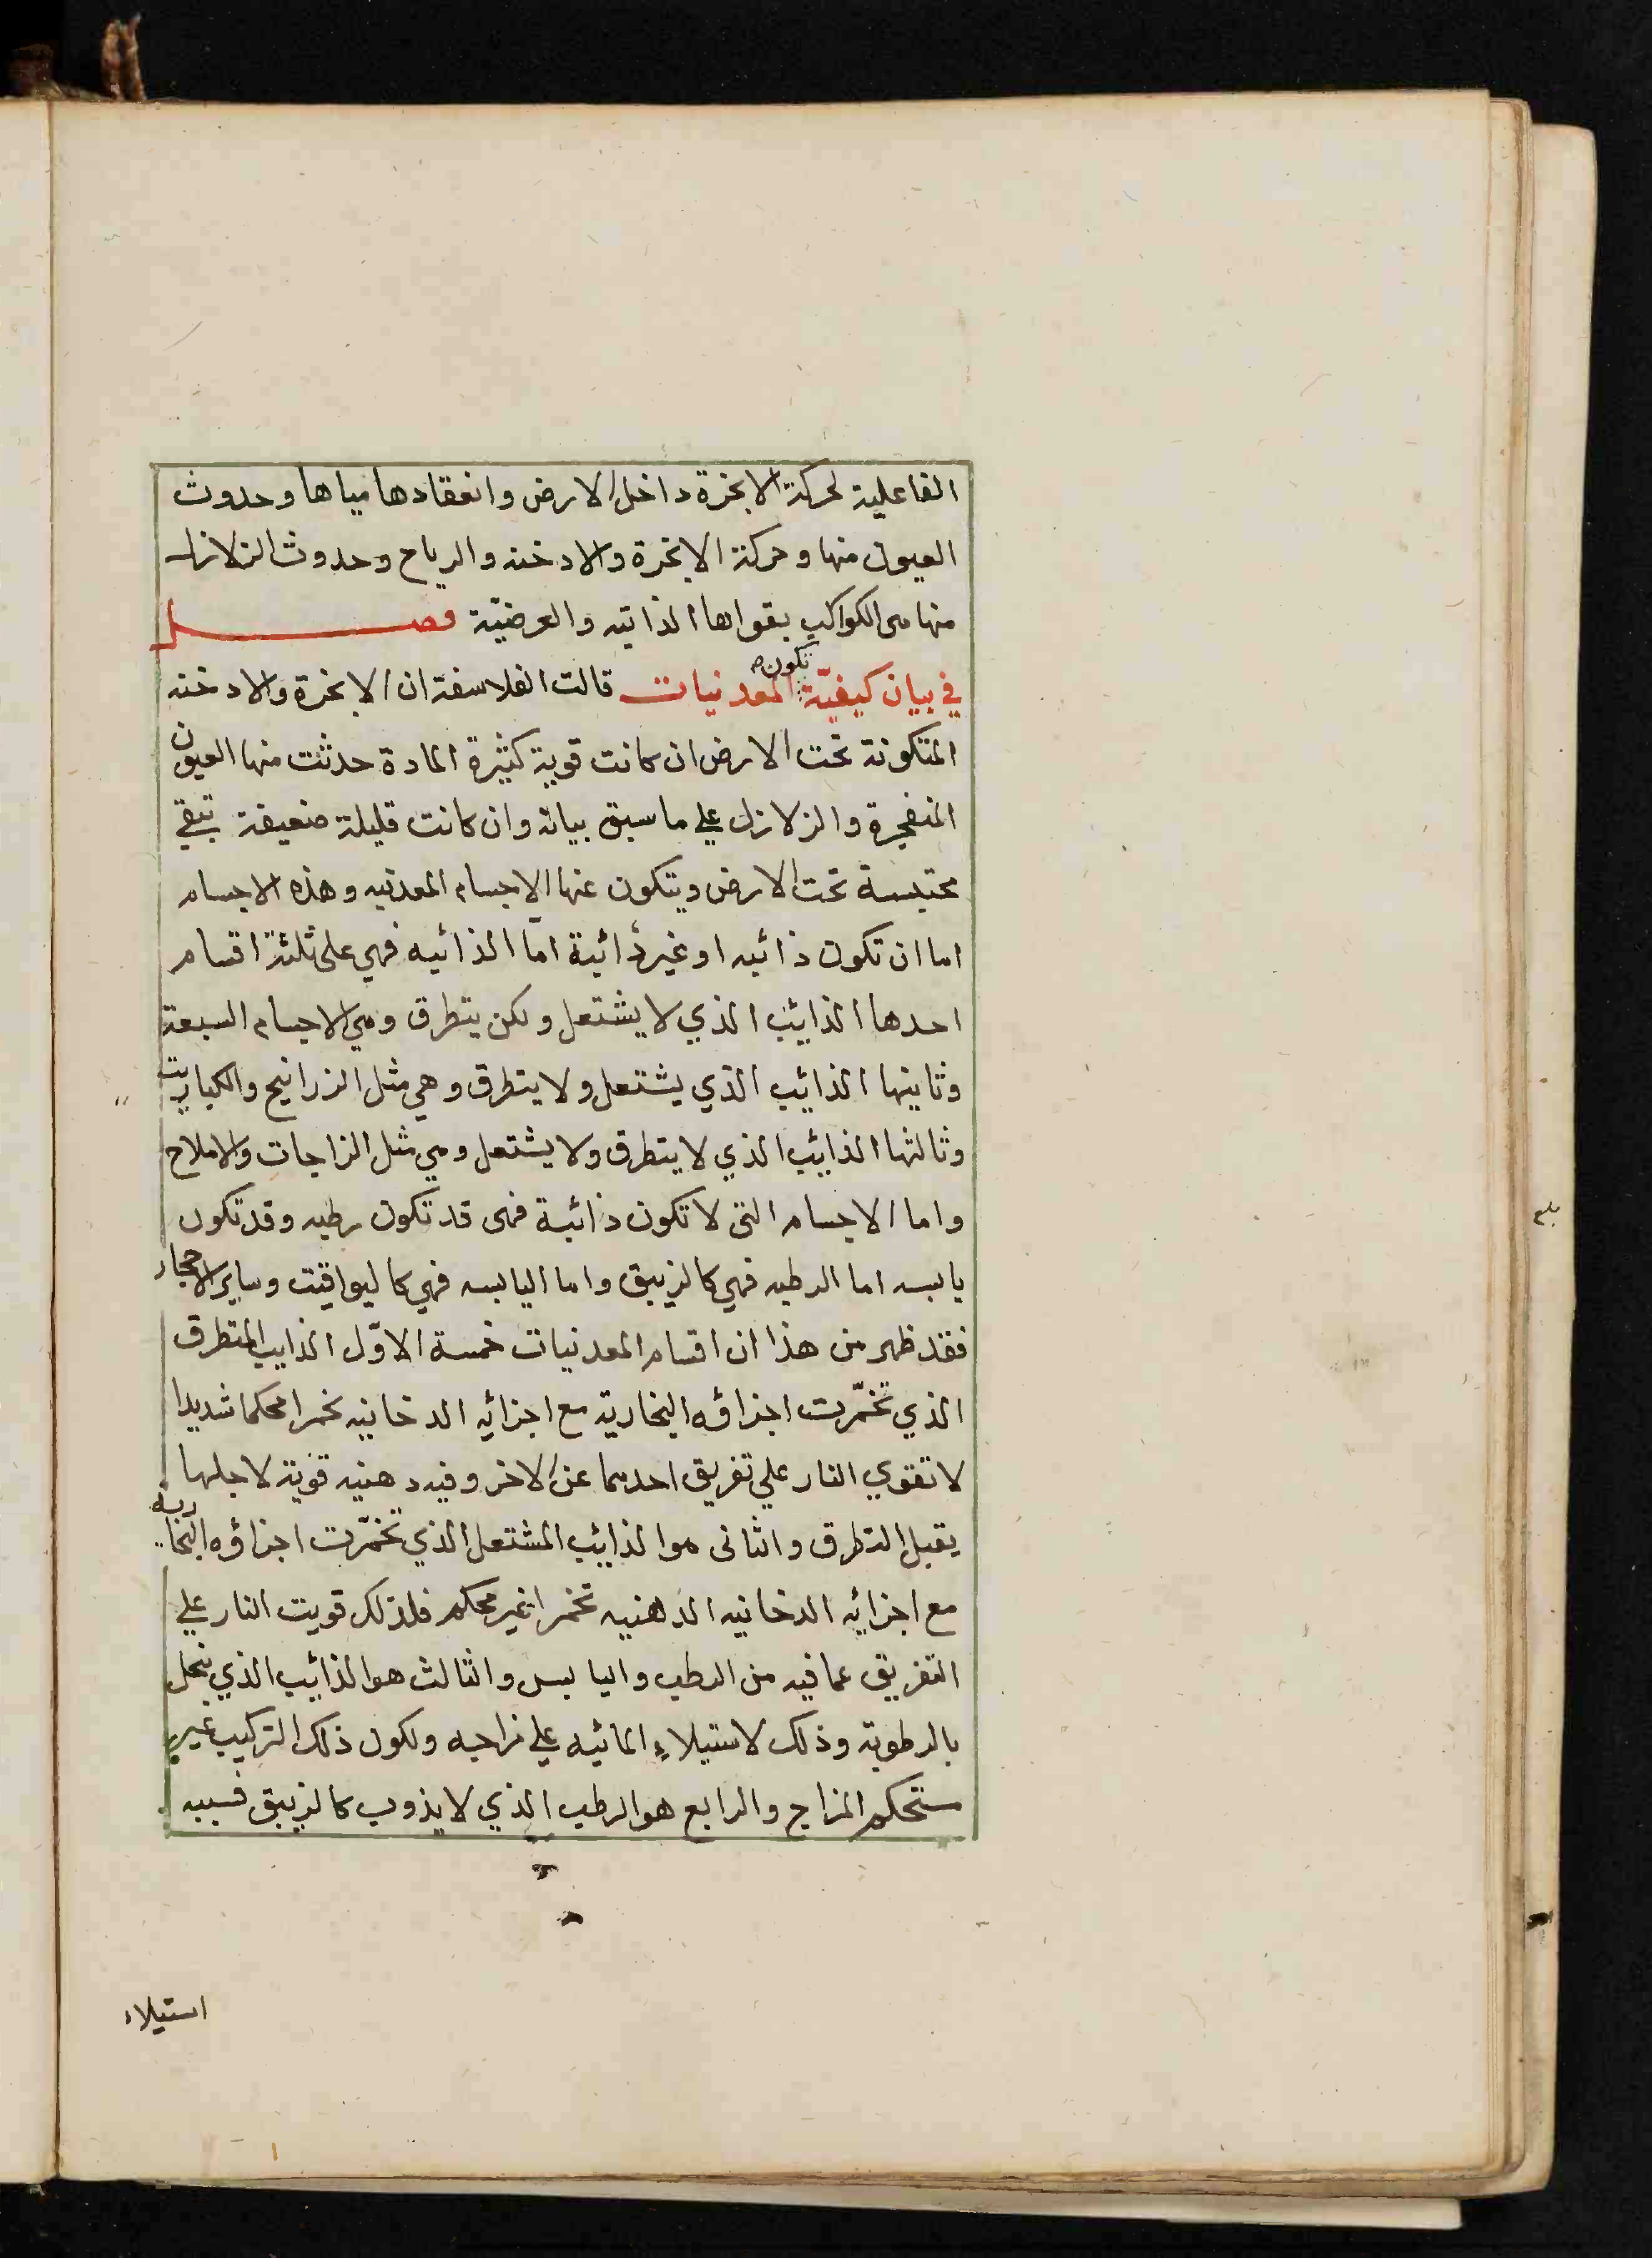 الفاعلية لحركة الابخرة داخل الارض وانعقادها مياها وحدوث
العيون منها وحركة الابخرة والادخنه والرياح وحدوث الزلازل
منها من الكواكب بقواها الذاتيه والعرضيّة فصل
في بيان كيفيّة تكون المعدنيات قالت الفلاسفة ان الابخرة والادخنه
المتكونة تحت الارض ان كانت قوية كثيرة المادة حدثت منها العيون
المنفجرة والزلازل علي ما سبق بيانه وان كانت قليلة ضعيفة تبقي
محتبسة تحت الارض ويتكون عنها الاجسام المعدنيه وهذه الاجسام
اما ان تكون ذائبه او غير ذائبة امّا الذائبه فهي على ثلثة اقسام
احدها الذايئب الذي لا يشتعل ولكن يتطرق وهي الاجسام السبعة
وثانيها الذائب الذي يشتعل ولا يتطرق وهي مثل الزرانيخ والكباريت
وثالثها الذايئب الذي لا يتطرق ولا يشتعل وهي مثل الزاجات والاملاح
واما الاجسام التي لا تكون ذائبة فهى قد تكون رطبه وقد تكون
يابسه اما الرطبه فهي كالزيبق واما اليابسه فهي كاليواقيت وساير الاحجار
فقد ظهر من هذا ان اقسام المعدنيات خمسة الاوّل الذايب المتطرق
الذي تخمّرت اجزاؤه البخارية مع اجزائه الدخانيه تخمرا محكما شديدا
لا تقوي النار علي تفريق احدهما عن الاخر وفيه دهنيه قوية لاجلها
يقبل التطرق والثانى هو الذايئب المشتعل الذي تخمّرت اجزاؤه البخارية
مع اجزائه الدخانيه الدهنيه تخمرا غير محكم فلذلك قويت النار علي
التفريق عما فيه من الرطب واليابس والثالث هو الذايئب الذي ينحل
بالرطوبة وذلك لاستيلاء المائيه علي مزاجه ولكون ذلك التركيب غير
مستحكم المزاج والرابع هو الرطب الذي لا يذوب كالزيبق فسببه
استيلاء